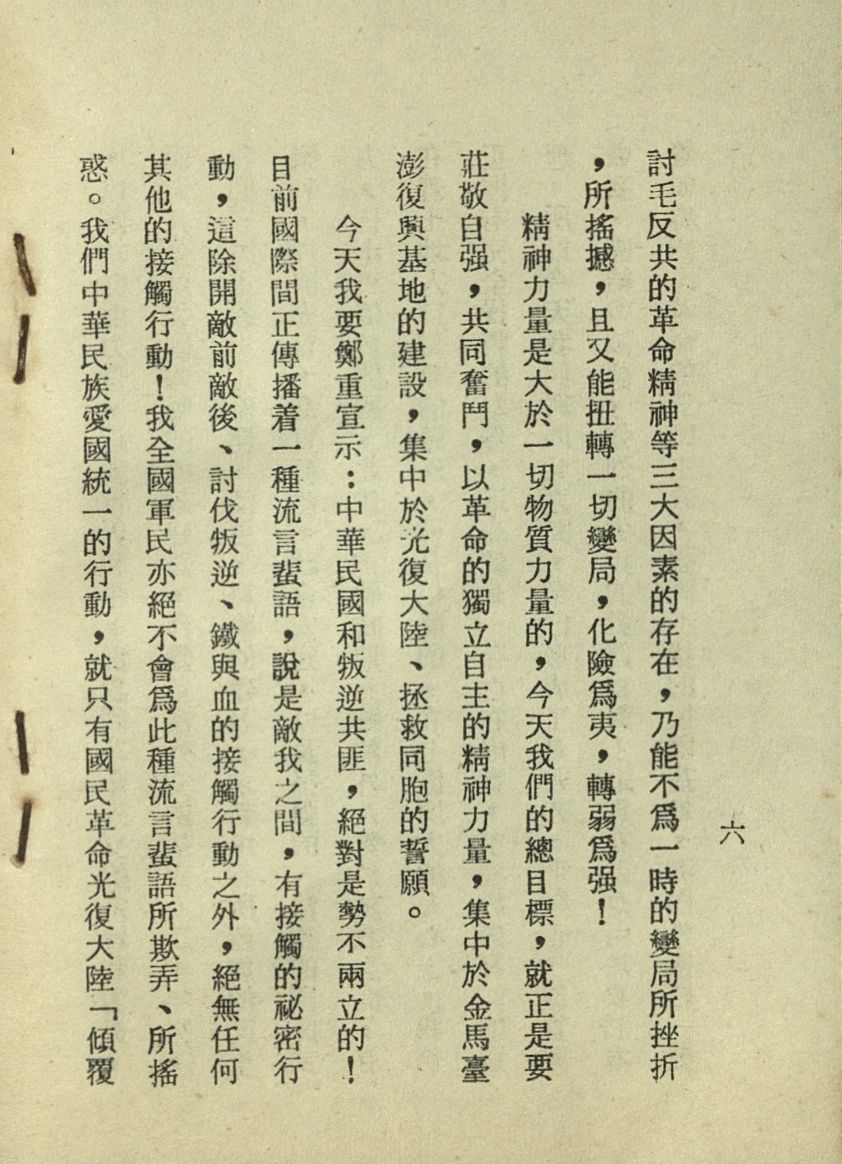 六
討毛反共的革命精神等三大因素的存在，乃能不爲一時的變局所挫折
，所搖撼，且又能扭轉一切變局，化險爲夷，轉弱爲强！
精神力量是大於一切物質力量的，今天我們的總目標，就正是要
莊敬自强，共同奮鬥，以革命的獨立自主的精神力量，集中於金馬臺
澎復興基地的建設，集中於光復大陸、拯救同胞的誓願。
今天我要鄭重宣示：中華民國和叛逆共匪，絕對是勢不兩立的！
目前國際間正傳播着一種流言蜚語，說是敵我之間，有接觸的祕密行
動，這除開敵前敵後、討伐叛逆、鐵與血的接觸行動之外，絕無任何
其他的接觸行動！我全國軍民亦絕不會爲此種流言蜚語所欺弄、所搖
惑。我們中華民族愛國統一的行動，就只有國民革命光復大陸「傾覆